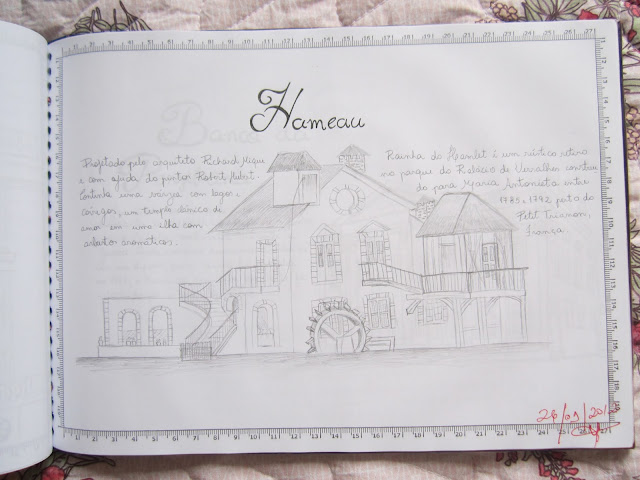 Hameau
Projetado pelo arquiteto Richard Mique
e com ajuda do pintor Robert Hubert.
Continha uma granja com lagos e
córregos, um templo clássico do
amor em uma ilha com
arbustos aromáticos.
Rainha do Hamlet é um rústico retiro
no parque do Palácio de Versalhes
do para Maria Antonieta entre
1783 e 1792 perto do
Petit Trianon,
França.